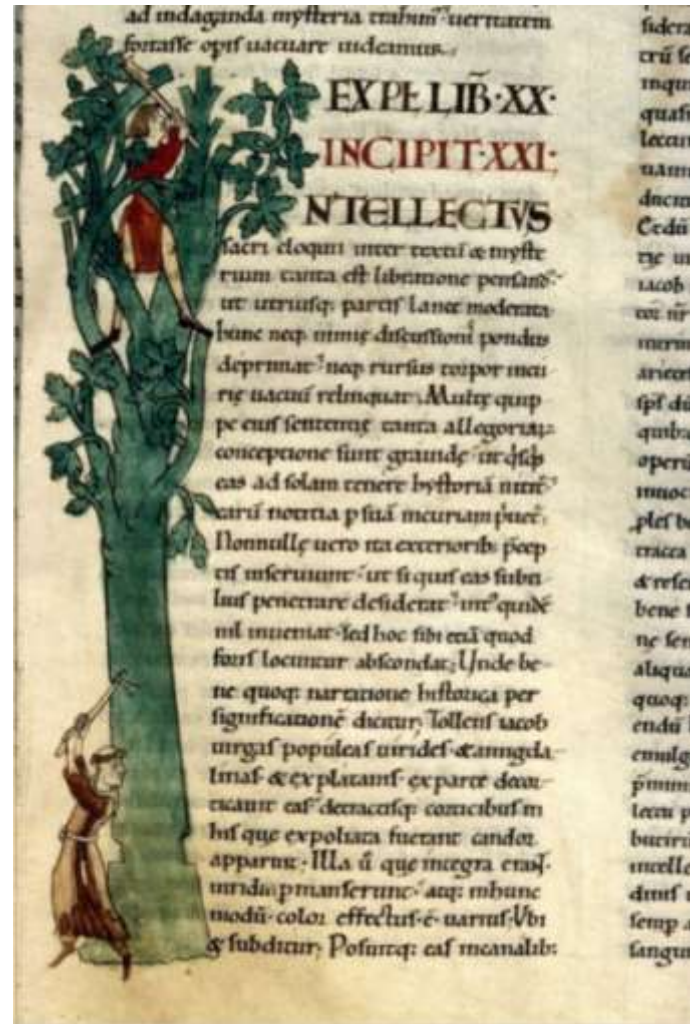 ad indaganda mysteria trahim᷒ ueritatem
fortasse opis uacuare uideamur.
EXPŁ LIB̄·XX·
INCIPIT·XXI·
NTELLECTVS
sacri eloquii inter textū & myste
rium tanta est libratione pensand᷒
ut utriusq; partis lance moderata
hunc neq; nimię discussionis pondus
deprimat neq; rursus torpor incu
rię uacuū relinquat; Multę quip
pe eius sententię tanta allegoriaꝝ
conceptione sunt grauidę ut q̄sq̄s
eas ad solam tenere hystoriā nitit᷒
earū notitia p suā incuriam p̄uet᷒;
Nonnullę uero ita exteriorib; p̄cep
tis inseruiunt ut si quis eas subti
lius penetrare desiderat int᷒ quidē
nil inueniat sed hoc sibi etiā quod
foris locuntur abscondat; Unde be
ne quoq; narratione historica per
significationē dicitur; Tollens iacob
uirgas populeas uirides & amigda
linas & ex platanis ex parte decor
ticauit eas detractisq; corticibus in
his que expoliata fuerant candor
apparuit; Illa ū que integra erant
uiridia pmanserunt atq; in hunc
modū color effectus ē uarius; Vbi
& subditur; Posuitq; eas in canalib;
sidera
inqui
quasi
iacob
operū
innoc
bene
aliqua
quoq:
semp
sangui